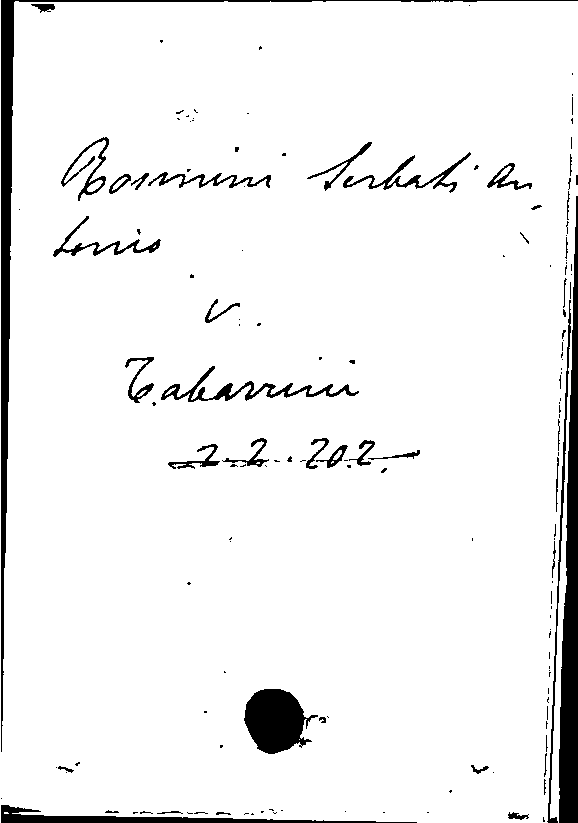 Rosmini Serbati An-
tonio
v.
Tabarrini
2.2.202.